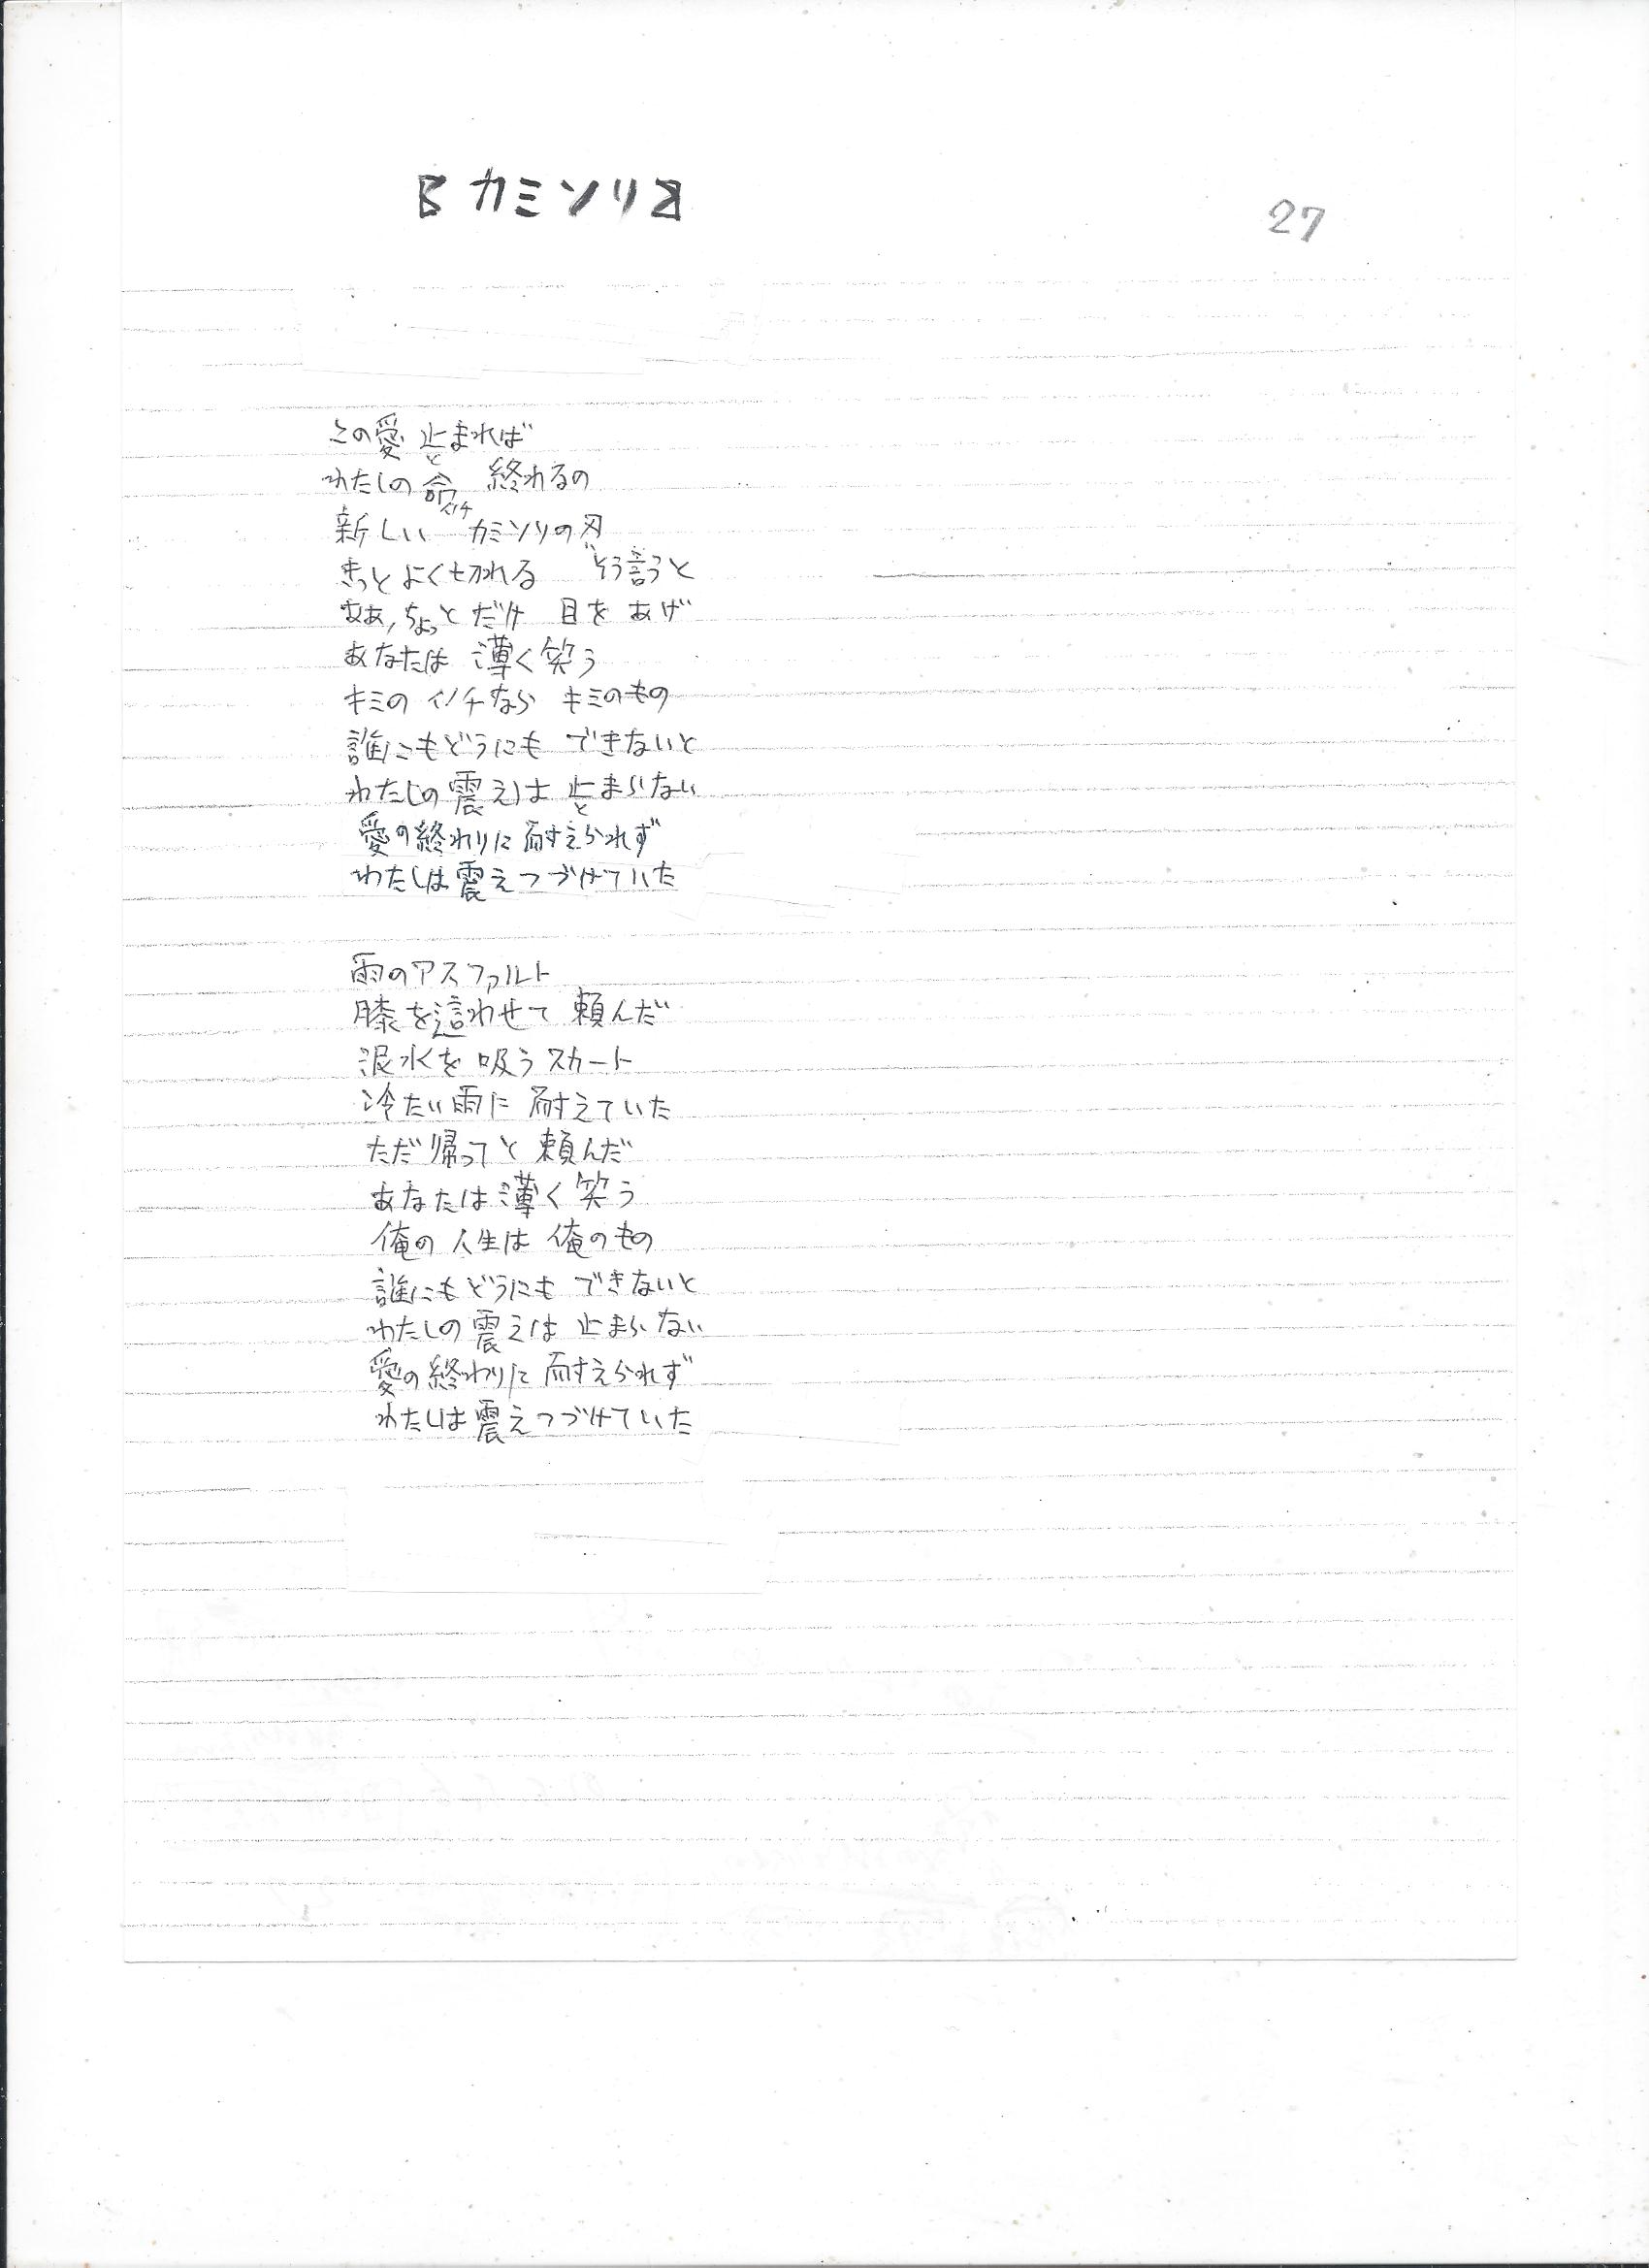 【カミソリ】
27
この愛 止まれば
と
わたしの命 終れるの
イノチ
新しい カミソリの刃
きっとよく切れる そう言うと
ああ,ちょっとだけ 目を あげ
あなたは 薄く笑う
キミの イノチなら キミのもの
誰にもどうにも できないと
わたしの震えは 止まらない
と
愛の終わりに耐えられず
わたしは震えつづけていた
雨のアスファルト
膝を這わせて 頼んだ
泥水を 吸うスカート
冷たい雨に 耐えていた
ただ帰ってと 頼んだ
あなたは薄く 笑う
俺の 人生は 俺のもの
誰にもどうにも できないと
わたしの震えは 止まらない
愛の終わりに 耐えられず
わたしは震えつづけていた